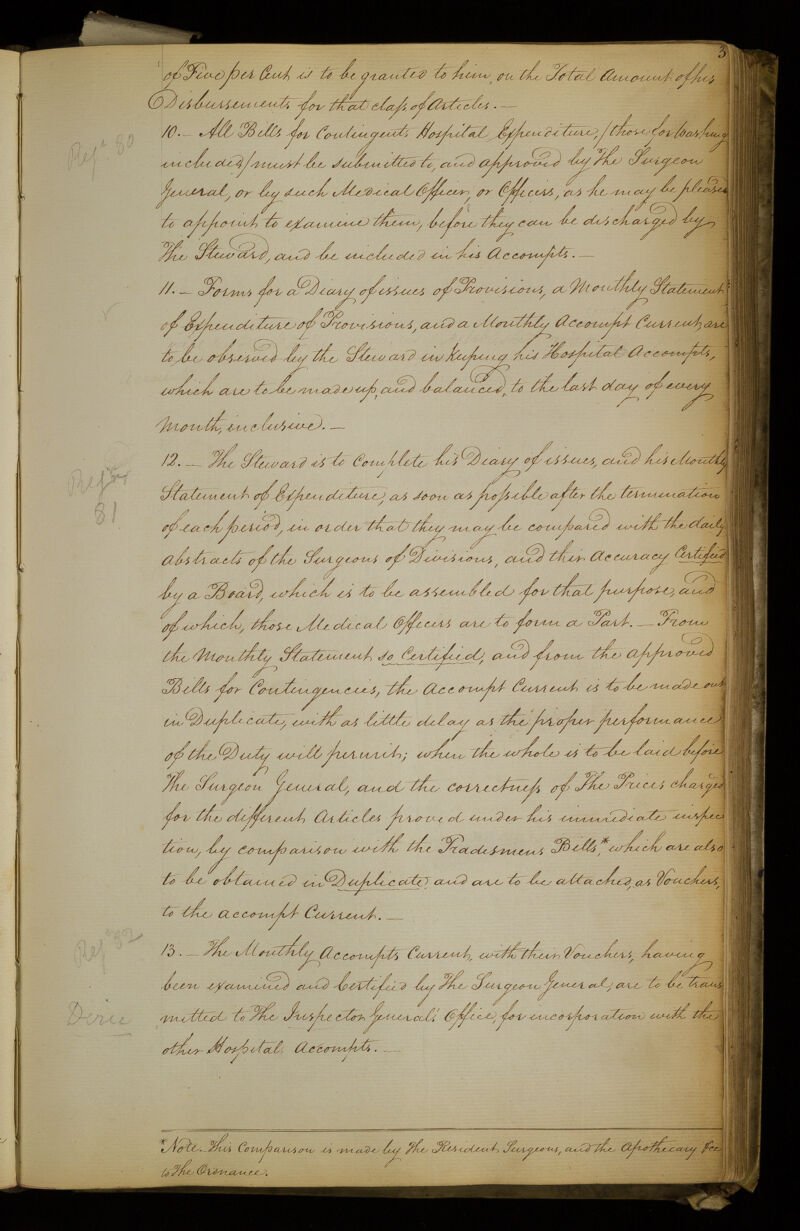 3
of Five per Cent is to be granted to him, on the Total Amount of his
Disbursements for that class of Articles. —
Regns. 80
10. — All Bills for Contingent Hospital Expenditure, /those for Washing
included/ must be submitted to, and approved by The Surgeon
General, or by such Medical Officer, or Officers, as he may be pleased
to appoint to examine them, before they can be discharged by
The Steward, and be included in his Accompts. —
11. — Forms for a Diary of issues of Provisions, a Monthly Statement
of Expenditure of Provisions, and a Monthly Accompt Current, are
to be observed by the Steward in keeping his Hospital Accompts,
which are to be made up, and balanced, to the last day of every
Month, inclusive. —
12. — The Steward is to complete his Diary of issues, and his Monthly
81
Statement of Expenditure, as soon as possible after the termination
of each period, in order that they may be compared with the daily
Abstracts of the Surgeons of Divisions, and their accuracy Certified
by a Board, which is to be assembled for that purpose, and
of which, those Medical Officers are to form a Part. — From
the Monthly Statement so Certified, and from the approved
Bills for Contingencies, the Accompt Current is to be made out
in Duplicate, with as little delay as the proper performance
of the Duty will permit; when the whole is to be laid before
The Surgeon General, and the correctness of The Prices charged
for the different Articles proved under his immediate inspec
tion, by comparison with the Tradesmens Bills,* which are also
to be obtained in Duplicate, and are to be attached, as Vouchers,
to the Accompt Current. —
82
13. — The Monthly Accompts Current, with their Vouchers, having
been examined and Certified by The Surgeon General, are to be trans
mitted to The Inspector General's Office, for incorporation with the
other Hospital Accompts. —
* Note. This Comparison is made by The Resident Surgeons, and the Apothecary &c
to The Ordnance.